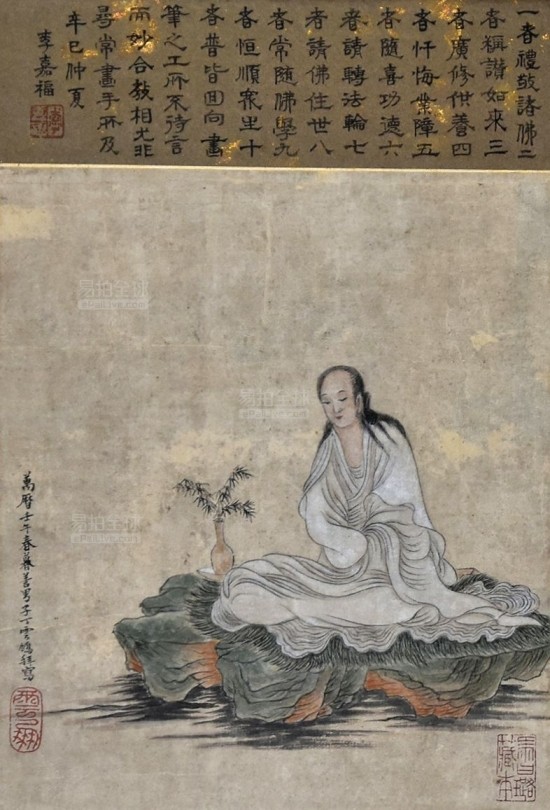 一者禮敬諸佛二
者稱讚如來三
者廣修供養四
者忏悔業障五
者隨喜功德六
者請轉法輪七
者請佛住世八
者常隨佛學九
者恒順眾生十
者普皆回向畫
筆之工所不待言
而妙合教相尤非
尋常畫手所及
辛巳仲夏
李嘉福
萬曆壬午春暮善男子丁雲鵬拜寫
易拍全球
易拍全球
易拍全球